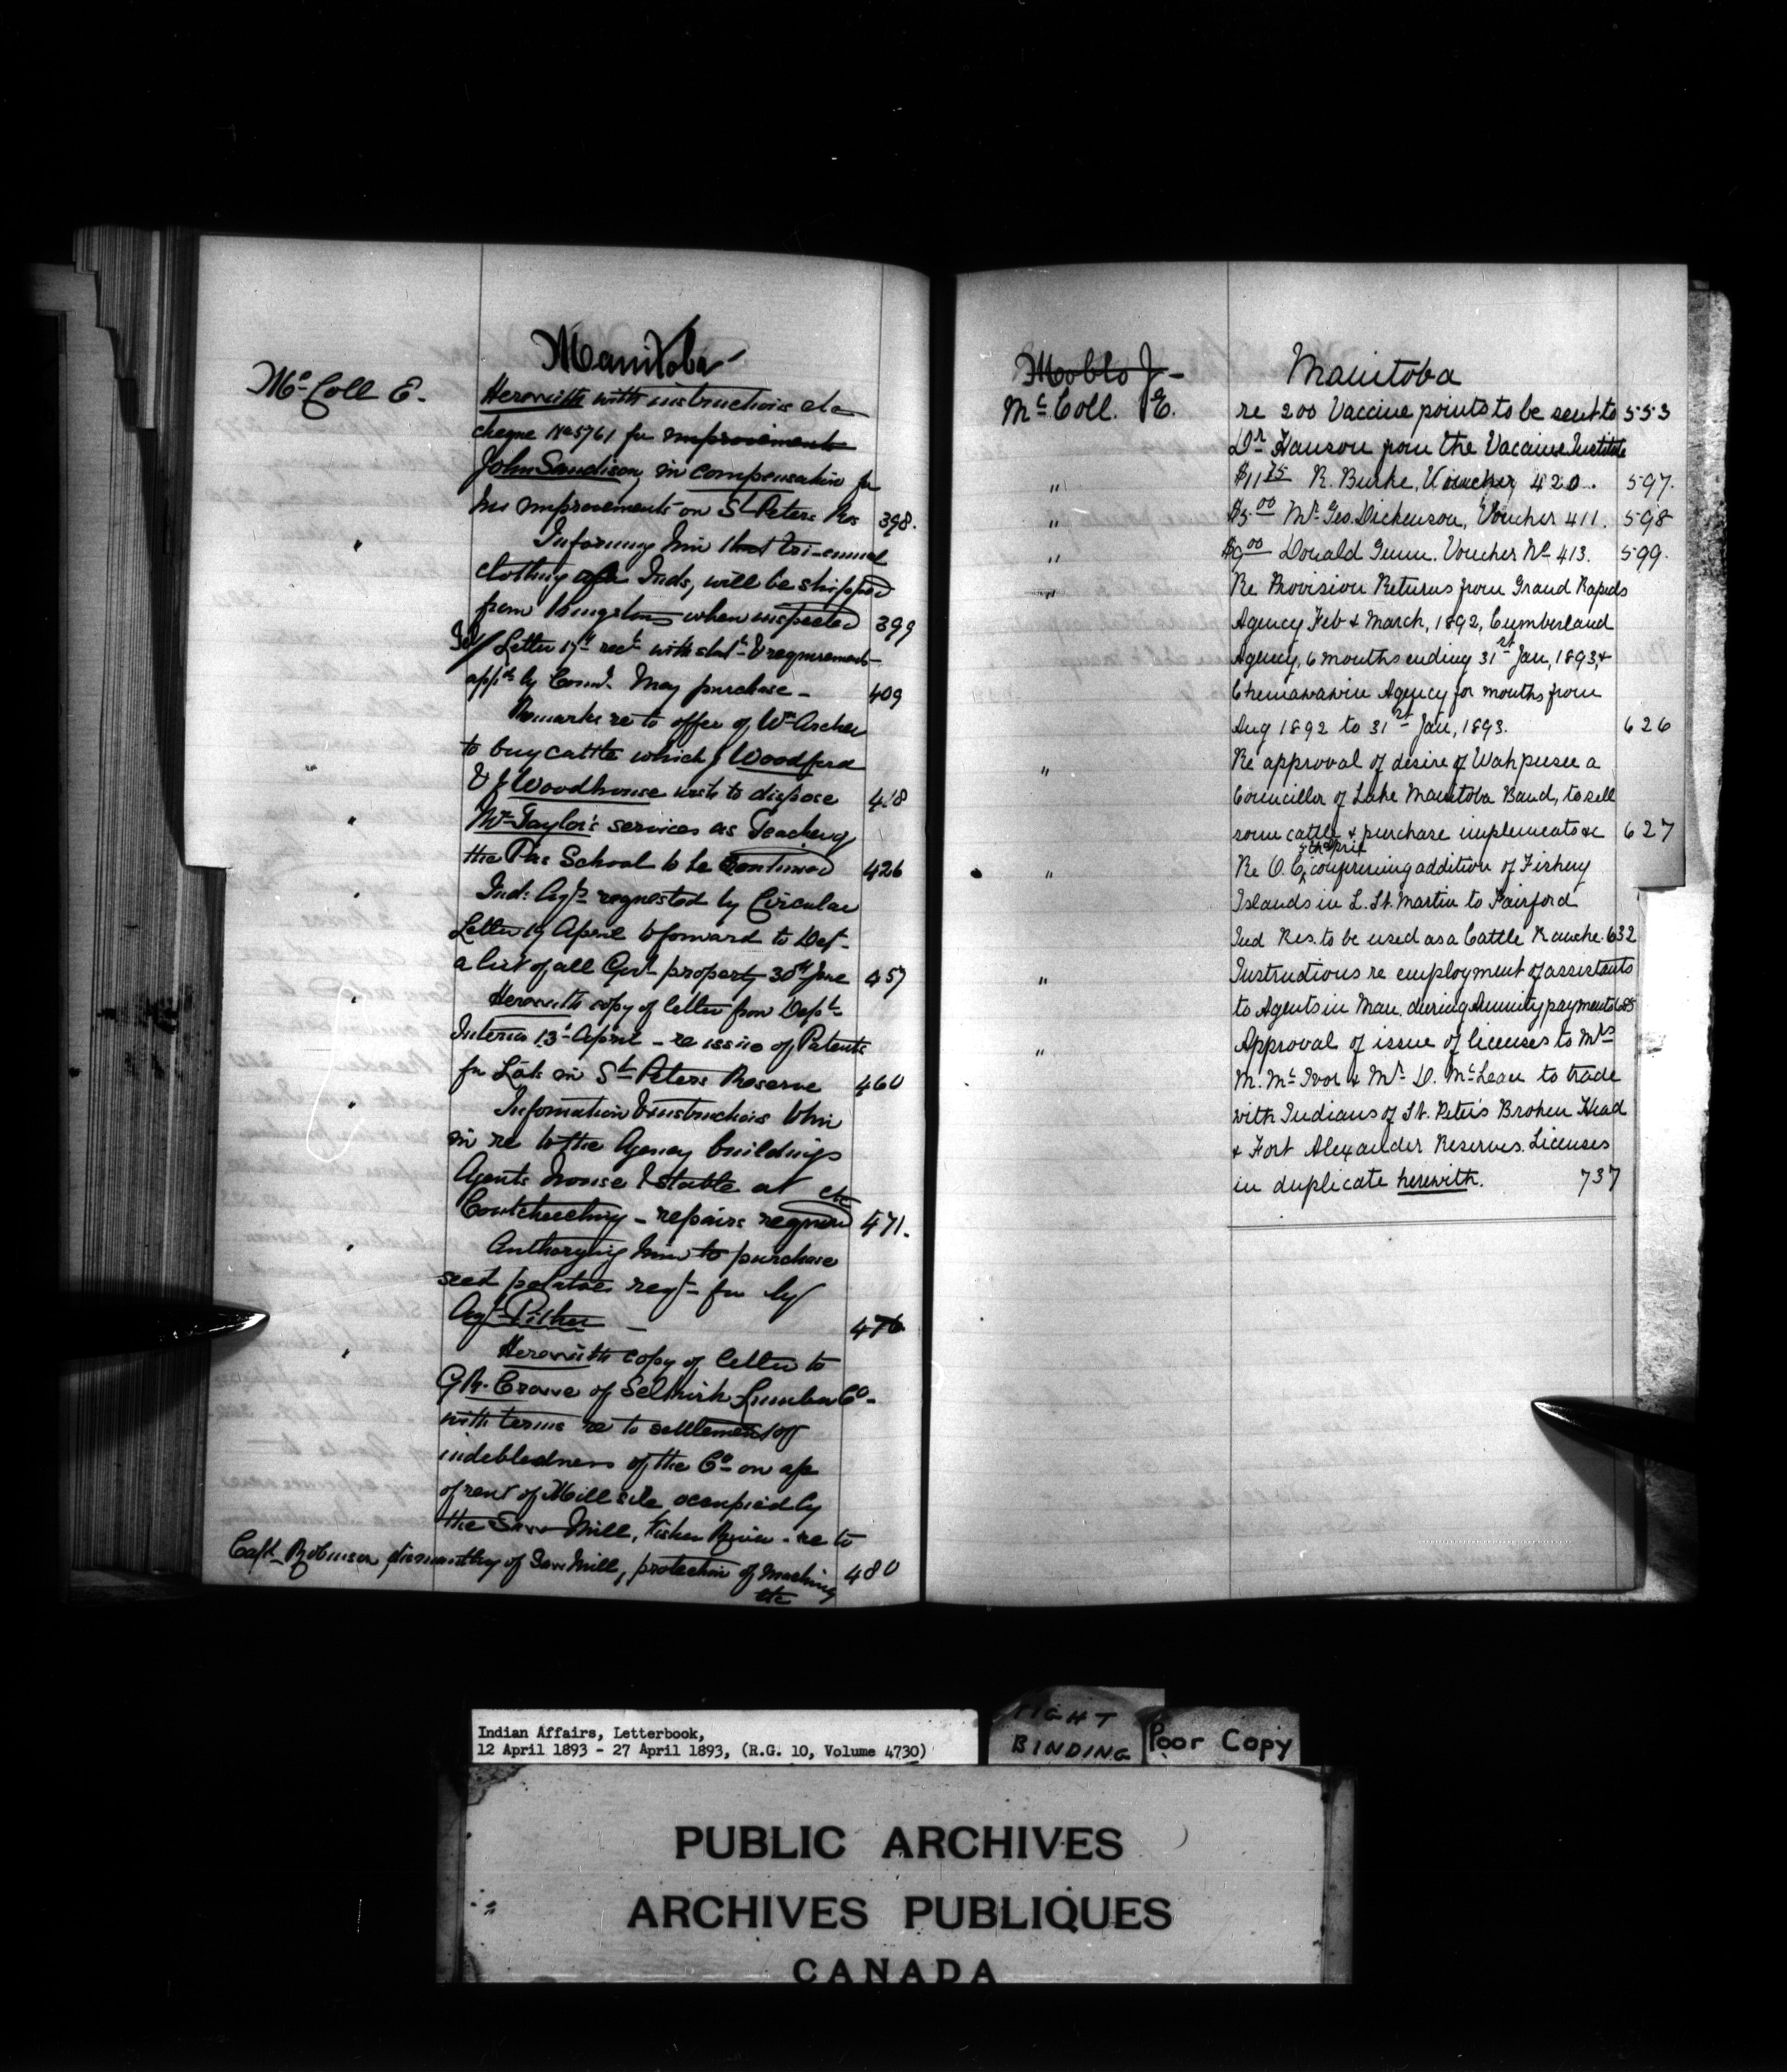 Manitoba
McColl E.
Herewith with instructions etc
cheque No 5761 for improvements
John Sandison in compensation for
his improvements on St Peters Res 398.
" Informing him that tri-ennial
clothing for Inds, will be shipped
from Kingston when inspected 399
Letter 17th rect with stat. & requirements
appd by Comr. May purchase - 409
Remarks re to offer of Wm Archer
to buy cattle which J Woodford
" & J Woodhouse wish to dispose 418
" Mr Taylor's services as Teacher of
the Pas School to be continued 426
" Ind: Agts requested by Circular
Letter 19 April to forward to Dept
a list of all Govt property 30th June 457
" Herewith copy of letter from Dept
Interior 13 April - re issue of Patents
for Lots in St Peters Reserve 460
" Information & instructions to him
in re to the Agency buildings
Agents house & stable at etc
Coutcheeching - repairs required 471.
" Authorizing him to purchase
seed potatoes reqd for by
Agt Pither - 476
" Herewith copy of letter to
G R. Crowe of Selkirk Lumber Co-
with terms re to settlement of
indebtedness of the Co on a/c
of rent of Mill site occupied by
the Saw Mill, Fisher River - re to
Capt Robinson dismantling of Saw Mill, protection of machinery 480
etc
Manitoba
McColl. E.
re 200 Vaccine points to be sent to 553
Dr Hanson from the Vaccine Institute
" $11 75 R. Burke, Voucher 420. 597.
" $5 00 Mr Geo. Dickenson, Voucher 411. 598
" $9 00 Donald Gunn. Voucher No 413. 599.
" Re Provision Returns from Grand Rapids
Agency Feb & March, 1892, Cumberland
Agency, 6 months ending 31st Jan, 1893, &
Chemawawin Agency for months from
Aug 1892 to 31st Jan, 1893. 626
" Re approval of desire of Wahpusee a
Councillor of Lake Manitoba Band, to sell
some cattle & purchase implements &c 627
7th April
" Re O. C. confirming addition of Fishery
Islands in L. St. Martin to Fairford
Ind Res. to be used as a Cattle Ranche. 632
" Instructions re employment of assistants
to Agents in Man. during Annuity payments 685
" Approval of issue of licenses to Mrs
M. McIvor & Mr D. McLean to trade
with Indians of St. Peter's Broken Head
& Fort Alexander Reserves. Licenses
in duplicate herewith. 737
Indian Affairs, Letterbook,
12 April 1893 - 27 April 1893, (R.G. 10, Volume 4730)
TIGHT
BINDING
Poor Copy
PUBLIC ARCHIVES
ARCHIVES PUBLIQUES
CANADA